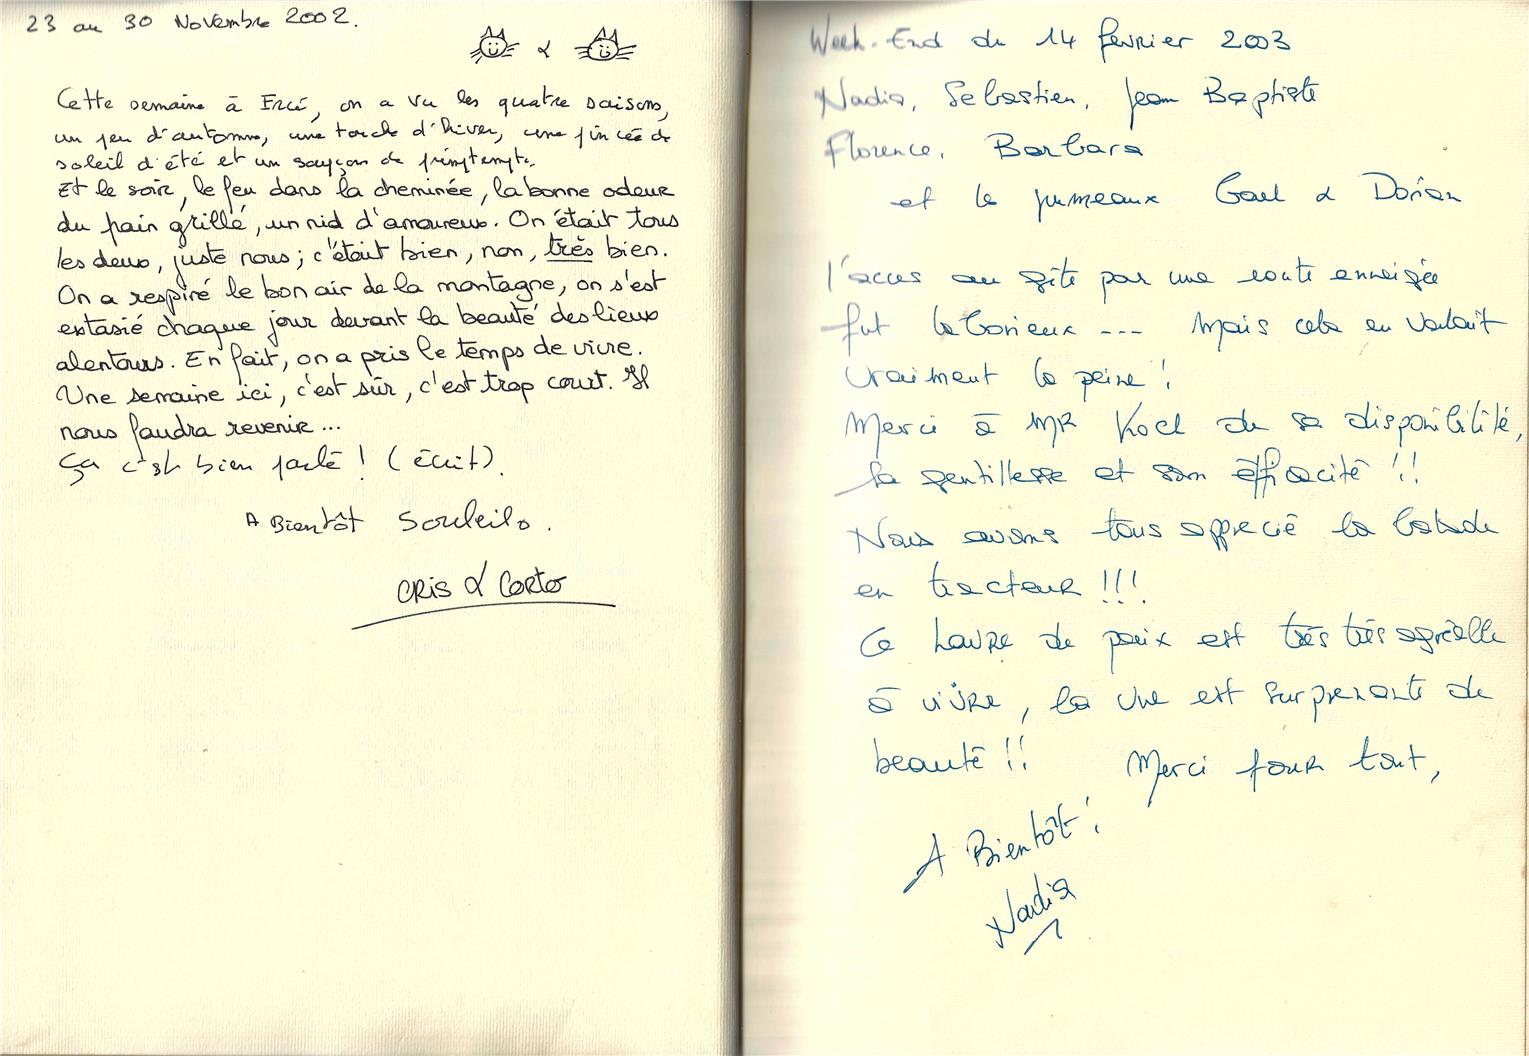 23 au 30 Novembre 2002.
&
Cette semaine à Ercé, on a vu les quatre saisons,
un peu d'automne, une touche d'hiver, une pincée de
soleil d'été et un soupçon de printemps.
Et le soir, le feu dans la cheminée, la bonne odeur
du pain grillé, un nid d'amoureux. On était tous
les deux, juste nous ; c'était bien, non, très bien.
On a respiré le bon air de la montagne, on s'est
extasié chaque jour devant la beauté des lieux
alentours. En fait, on a pris le temps de vivre.
Une semaine ici, c'est sûr, c'est trop court. Il
nous faudra revenir...
ça c'est bien parlé ! (écrit).
A Bientôt Souleilo.
CRIS & Corto
Week-End du 14 février 2003
Nadia, Sebastien, Jean Baptiste
Florence, Barbara
et les jumeaux Gael & Dorian
l'acces au gîte par une route enneigée
fut laborieux --- Mais cela en valait
vraiment la peine !
Merci à MR Koch de sa disponibilité,
sa gentillesse et son éfficacité !!
Nous avons tous apprecié la balade
en tracteur !!!
Ce havre de paix est très très agréable
à vivre, la vue est surprenante de
beauté !! Merci pour tout,
A Bientôt !
Nadia